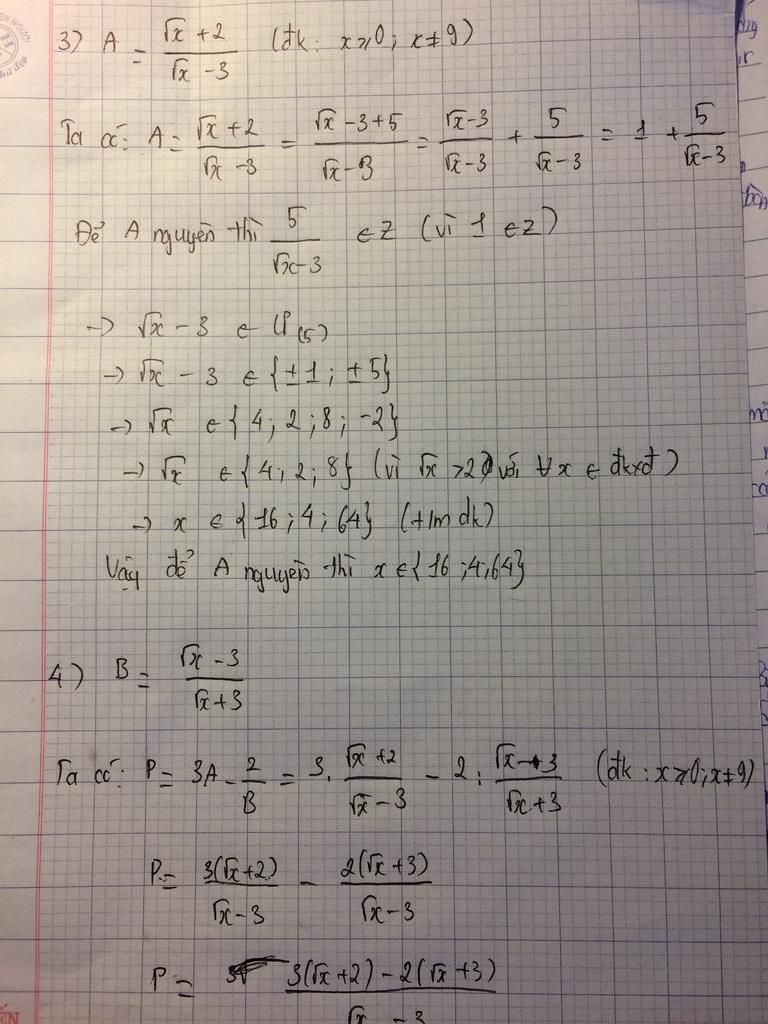 3) A = (√x + 2)/(√x - 3) (đk: x ≥ 0; x ≠ 9)
Ta có: A = (√x + 2)/(√x - 3) = (√x - 3 + 5)/(√x - 3) = (√x - 3)/(√x - 3) + 5/(√x - 3) = 1 + 5/(√x - 3)
Để A nguyên thì 5/(√x - 3) ∈ Z (vì 1 ∈ Z)
→ √x - 3 ∈ Ư(5)
→ √x - 3 ∈ {±1; ±5}
→ √x ∈ {4; 2; 8; -2}
→ √x ∈ {4; 2; 8} (vì √x ≥ 0 với ∀x ∈ đkxđ)
→ x ∈ {16; 4; 64} (t/m đk)
Vậy để A nguyên thì x ∈ {16; 4; 64}
4) B = (√x - 3)/(√x + 3)
Ta có: P = 3A - 2/B = 3. (√x + 2)/(√x - 3) - 2 : (√x - 3)/(√x + 3) (đk: x ≥ 0; x ≠ 9)
P = 3(√x + 2)/(√x - 3) - 2(√x + 3)/(√x - 3)
P = (3(√x + 2) - 2(√x + 3))/(√x - 3)